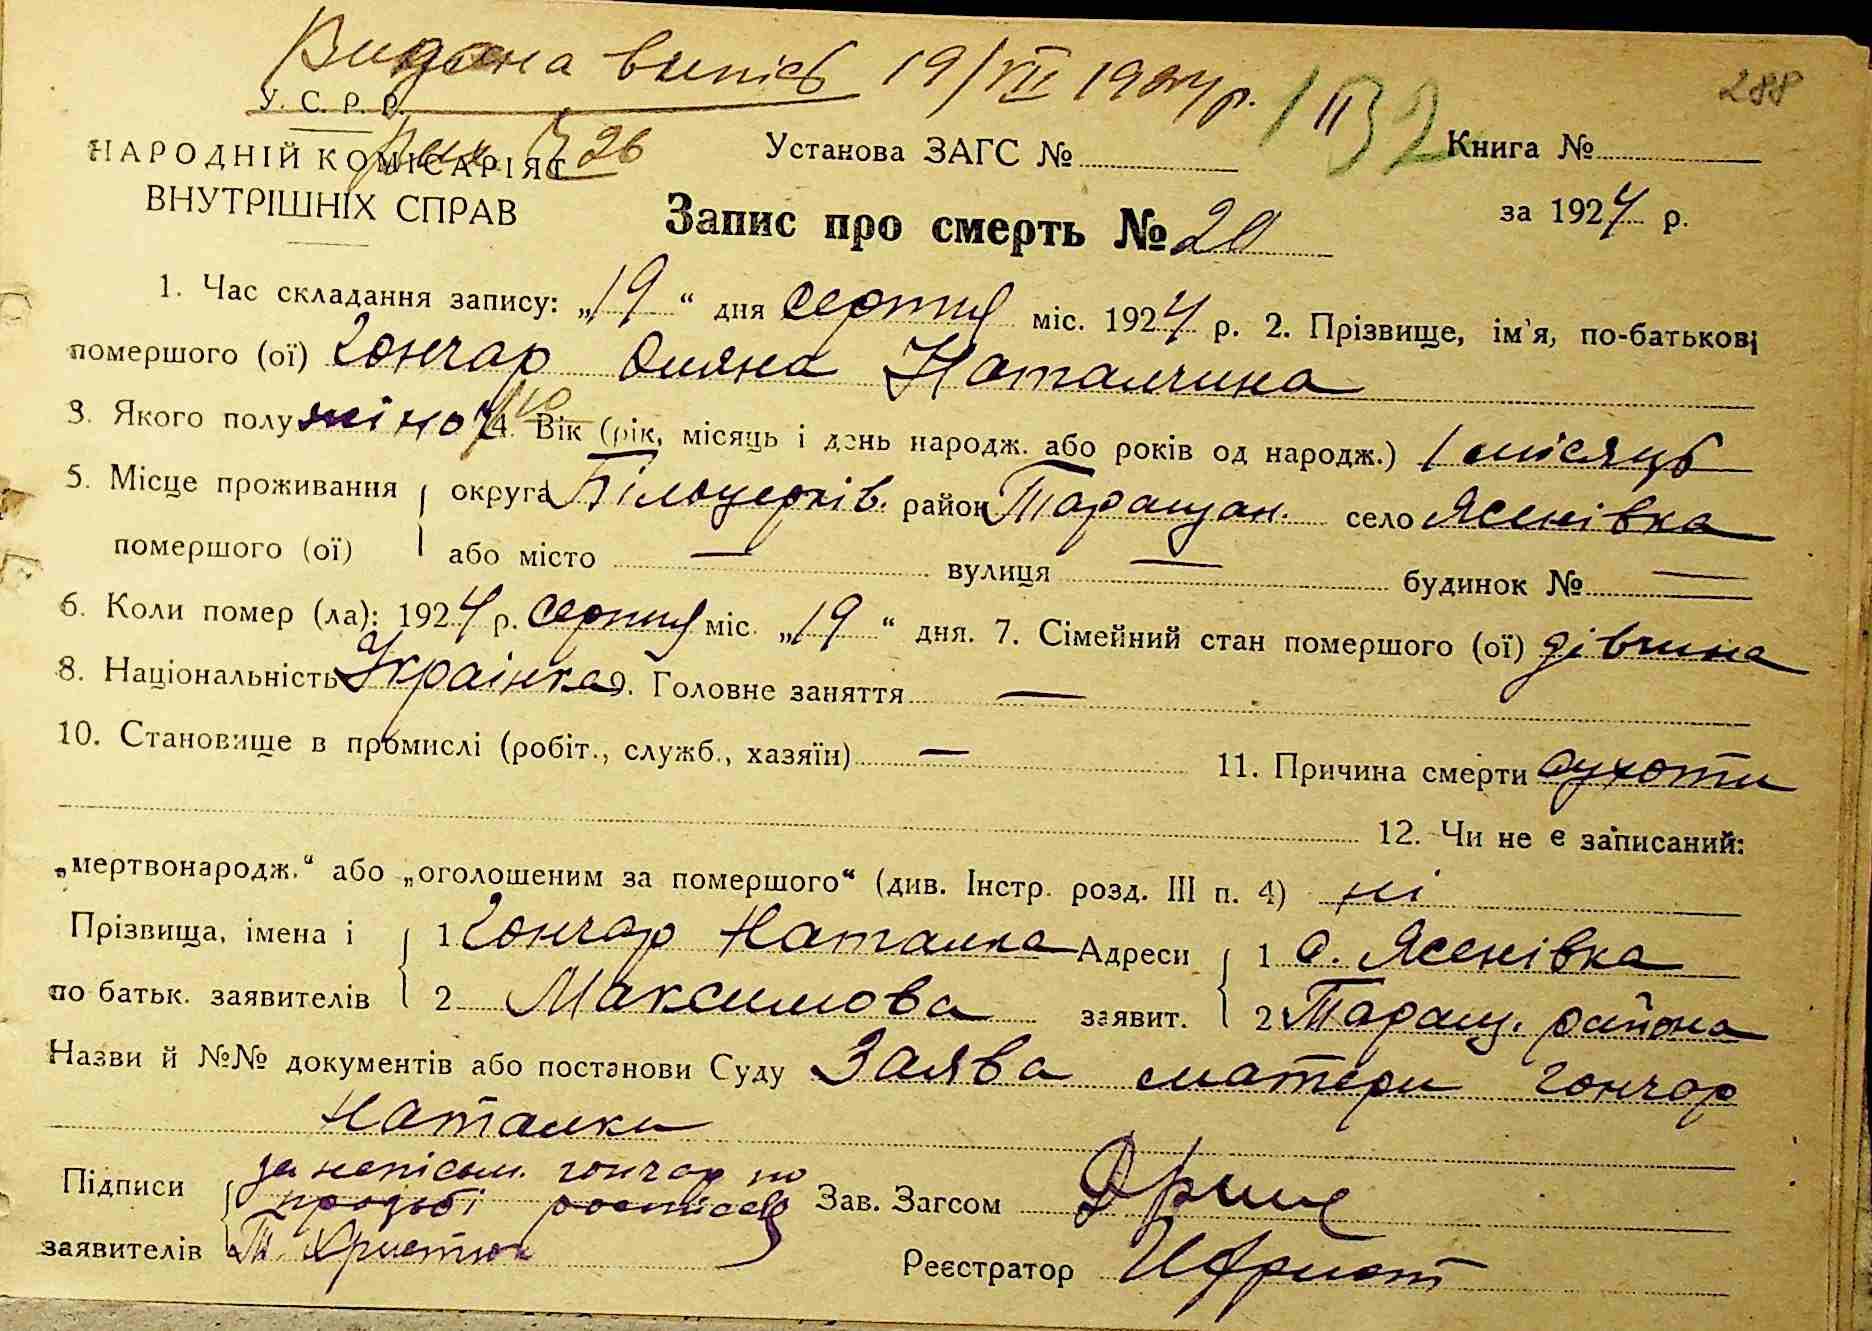 Видана випісь 19/VII 1924 р. 132 288
У. С. Р. Р.
НАРОДНІЙ КОМІСАРІЯТ 26 Установа ЗАГС № Книга №
ВНУТРІШНІХ СПРАВ Запис про смерть № 20 за 1924 р.
1. Час складання запису: „19“ дня серпня міс. 1924 р. 2. Прізвище, ім'я, по-батькові
помершого (ої) Гончар Онтална Наталчина
3. Якого полу жіноч 4. Вік (рік, місяць і день народж. або років од народж.) 1 місяць
5. Місце проживання округа Білоцерків. район Таращан. село Ясенівка
помершого (ої) або місто — вулиця — будинок № —
6. Коли помер (ла): 1924 р. серпня міс. „19“ дня. 7. Сімейний стан помершого (ої) дівчина
8. Національність Украінка 9. Головне заняття —
10. Становище в промислі (робіт., служб., хазяїн) — 11. Причина смерти сухоти
12. Чи не є записаний:
„мертвонародж.“ або „оголошеним за помершого“ (див. Інстр. розд. III п. 4) ні
Прізвища, імена і 1 Гончар Наталка Адреси 1 с. Ясенівка
по батьк. заявителів 2 Максимова заявит. 2 Таращ. района
Назви й №№ документів або постанови Суду Заява матери Гончар
Наталки
Підписи за непісьм. гончар по Зав. Загсом
прозьбі росписався
заявителів Т. Христюк Реєстратор